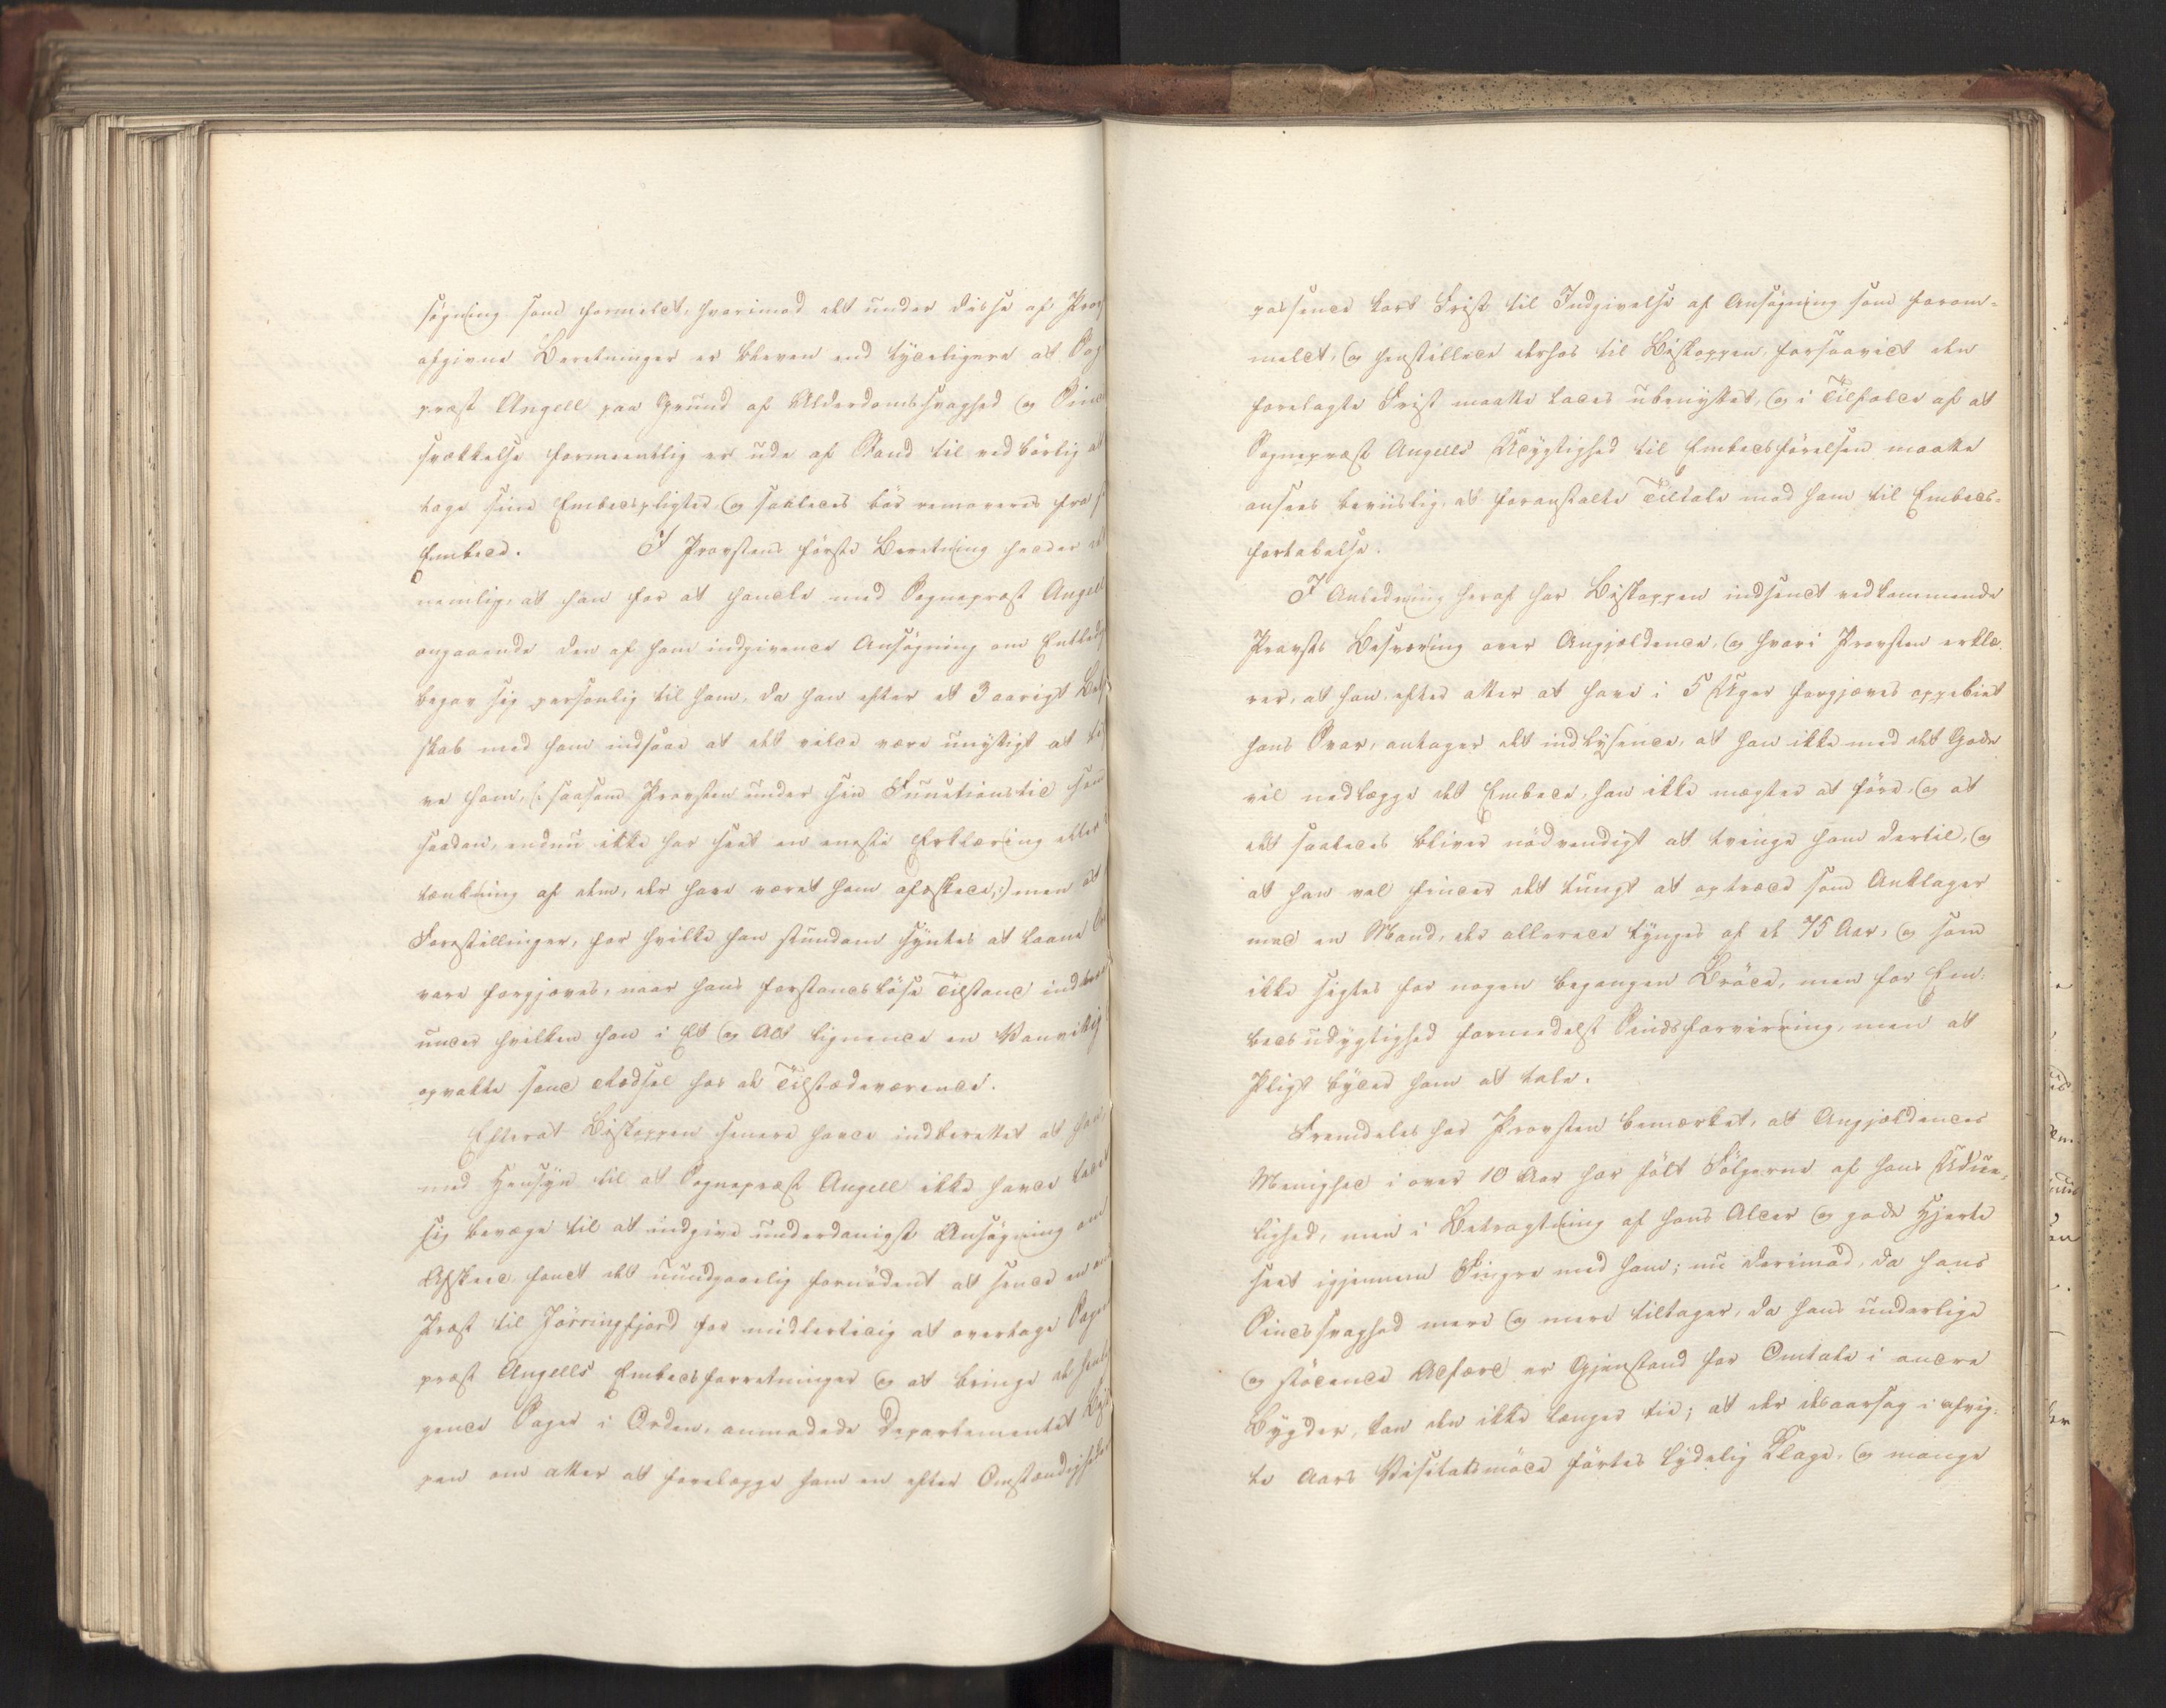 søgning som formeldt, hvorimod det under disse af Prov
afgivne Beretninger er bleven end tydeligere at Sog
præst Angell paa Grund af Alderdomssvaghed og Sind
svækkelse formeentlig er ude af Stand til vedbørlig at
tage sine Embedspligter og saaledes bør removeres fra s
Embede. I Provstens første Beretning hedder det
nemlig, at han for at handle med Sognepræst Angell
angaaende den af ham indgivende Ansøgning om Entleds
begav sig personlig til ham, da han efter et 3 aarigt Be
skab med ham indsaae at det vilde være unyttigt at ti
ve ham, (: saasom Provsten under sin Functionstid som
saadan, endnu ikke har seet en eneste Erklæring eller
tænkning af dem, der have været ham afæskede,:) men at
Forestillinger, for hvilke han stundom syntes at laane Ør
vare forgjæves, naar hans forstandsløse Tilstand indtraa
under hvilken han i Et og Alt lignende en Vanvittig
opvakte sand Rædsel hos de Tilstædeværende.
Efterat Biskoppen senere havde indberettet at han
med Hensyn til at Sognepræst Angell ikke havde ladet
sig bevæge til at indgive underdanigst Ansøgning om
Afskeed fandt det uundgaaelig fornødent at sende en an
Præst til Jørringfjord for midlertidig at overtage Sogne
præst Angells Embedsforretninger og at bringe de henlig
gende Sager i Orden, anmodede Departementet Bisk
pen om atter at forelægge ham en efter Omstændighede
passende kort Frist til Indgivelse af Ansøgning som forom-
meldt, og henstillede derhos til Biskoppen, forsaavidt den
forelagte Frist maatte lades ubenyttet, og i Tilfælde af at
Sognepræst Angells Udygtighed til Embedsførelsen maatte
ansees beviislig, at foranstalte Tiltale mod ham til Embeds-
fortabelse.
I Anledning heraf har Biskoppen indsendt vedkommende
Provsts Besværing over Angjældende, og hvori Provsten erklæ
rer, at han, efter atter at have i 5 Uger forgjæves oppebiet
hans Svar, antager det indlysende, at han ikke med det Gode
vil nedlægge det Embede, han ikke mægter at føre, og at
det saaledes bliver nødvendigt at tvinge ham dertil, og
at han vel finder det tungt at optræde som Anklager
mod en Mand, der allerede tynges af de 75 Aar, og som
ikke sigtes for nogen begangen Brøde, men for Em-
bedsudygtighed formedelst Sindsforvirring, men at
Pligt byder ham at tale.
Fremdeles har Provsten bemærket, at Angjældendes
Menighed i over 10 Aar har følt Følgerne af hans Udue-
lighed, men i Betragtning af hans Alder og gode Hjerte
seet igjennem Fingre med ham; nu derimod, da hans
Sindssvaghed mere og mere tiltager, da hans underlige
og stødende Adfærd er Gjenstand for Omtale i andre
Bygder, kan den ikke længer tie; at der desaarsag i afvig-
te Aars Visitatsmøde førtes lydelig Klage, og mange